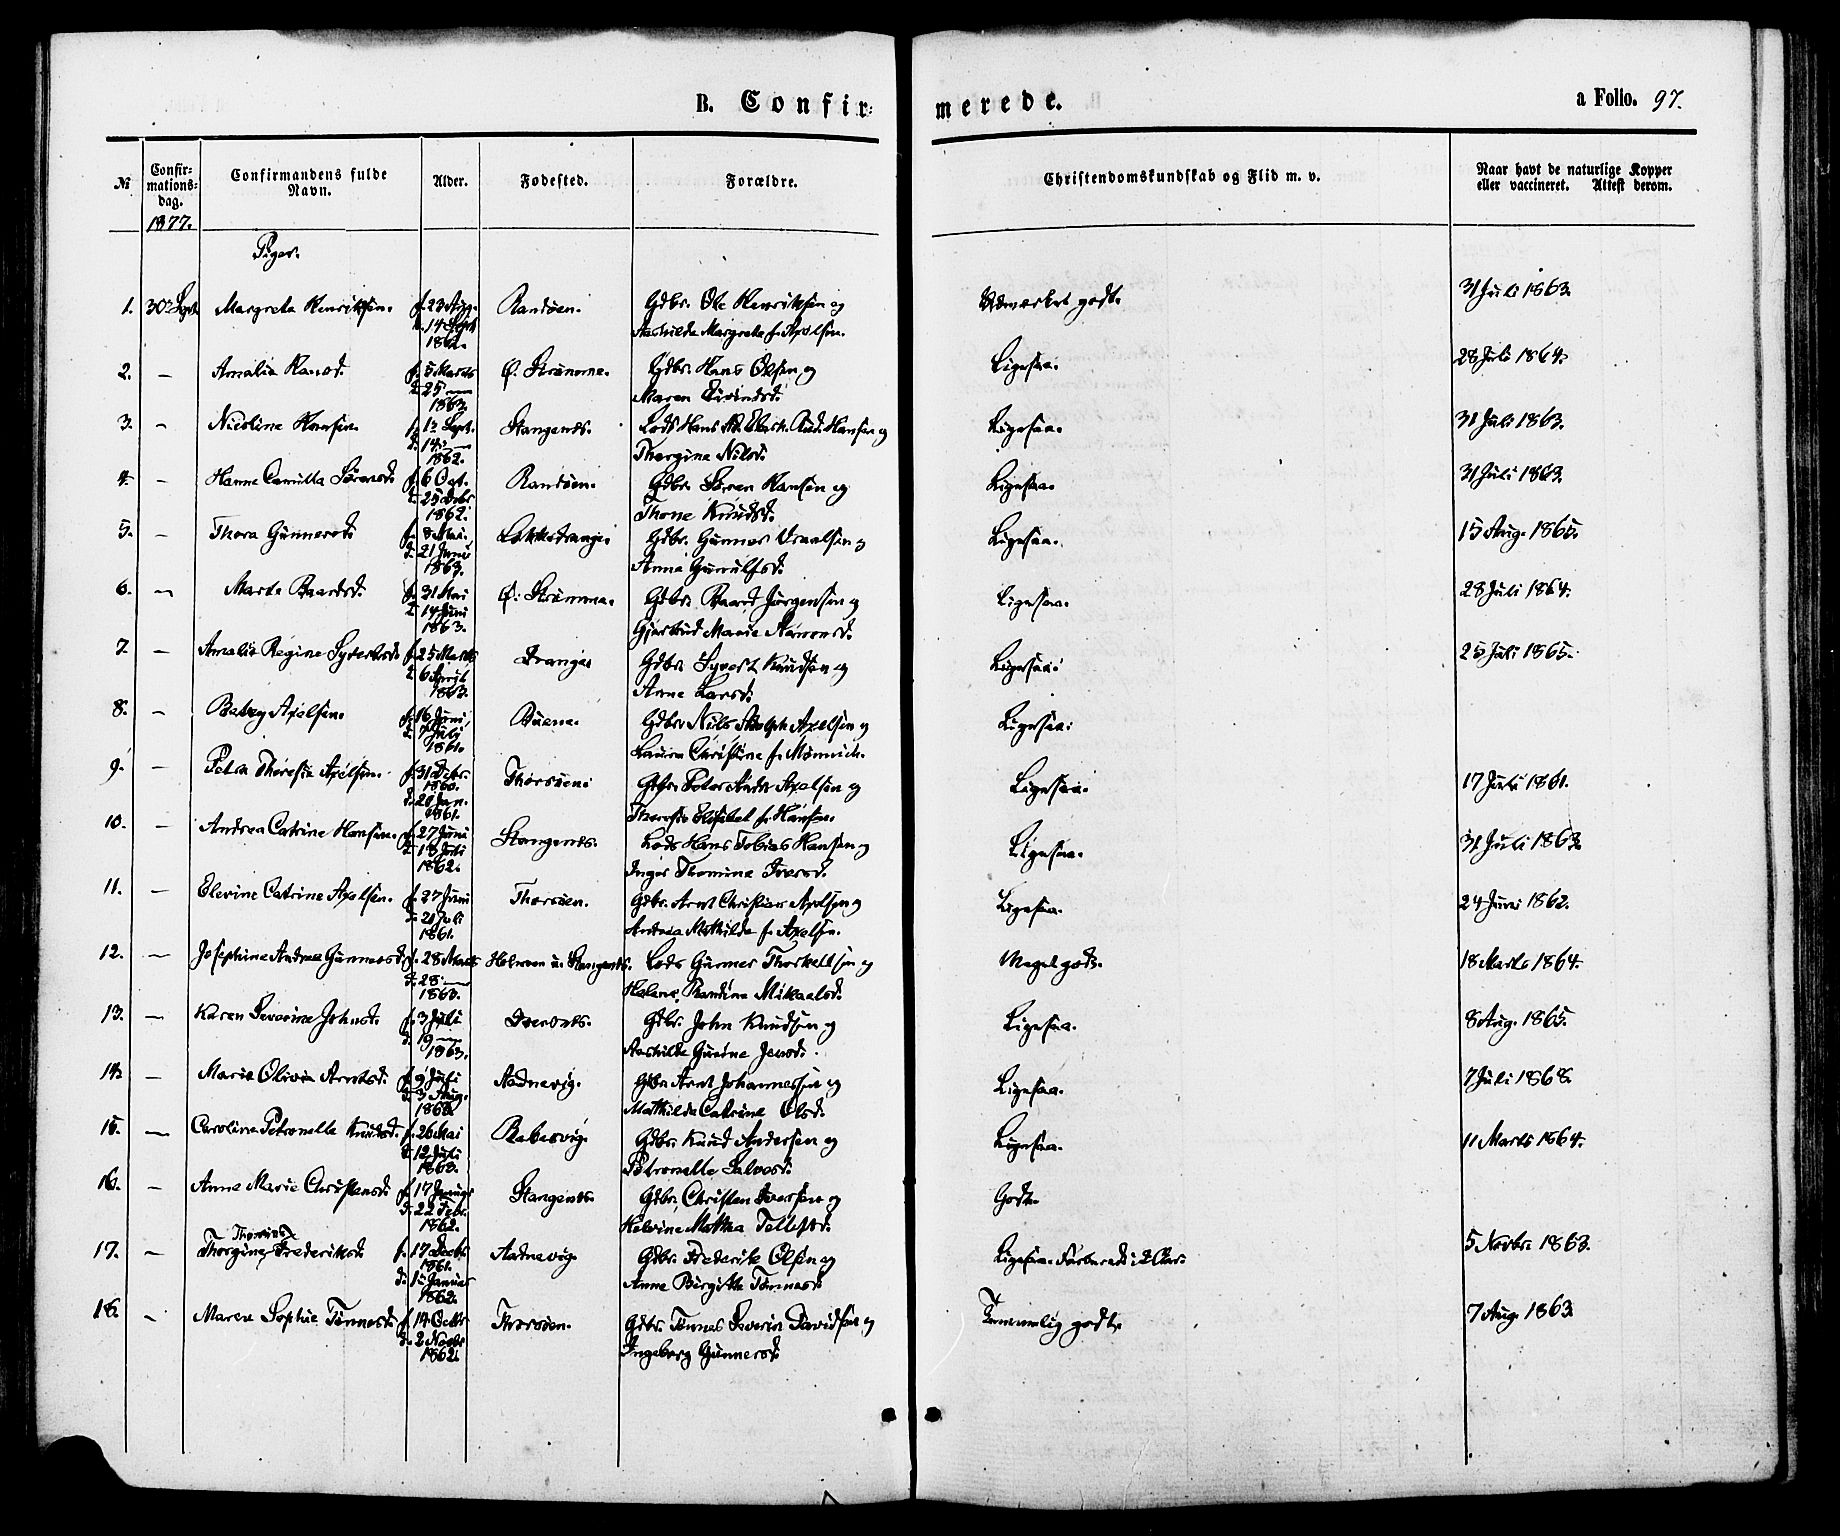 B. Confir-
merede.
a Folio. 97.
№
Confir-
mations-
dag.
Confirmandens fulde
Navn.
Alder.
Fødested.
Forældre.
Christendomskundskab og Flid m. v.
Naar havt de naturlige Kopper
eller vaccineret. Attest derom.
1877.
Piger.
1. 30 Sept. Margrete Henriksen. f. 23 Aug. Randøen. Gdbr. Ole Henriksen og Udmærket godt. 31 Juli 1863.
d. 14 Sept Aashilda Margrete f. Axelsen.
1862.
2. — Amalia Hansd. f. 5 Marts Ø. Strømme. Gdbr. Hans Olsen og Ligesaa. 28 Juli 1864.
d. 25 — Maren Eivindsd.
1863.
3. — Nicoline Hansen. f. 12 Sept. Stangenes. Lods Hans Hansen og Ligesaa. 31 Juli 1863.
d. 14 — Thorgine Nilsd.
1862.
4. — Hanne Camilla Sørensd. f. 6 Oct. Randøen. Gdbr. Søren Hansen og Ligesaa. 31 Juli 1863.
d. 25 Decbr Thone Knudsd.
1862.
5. — Thora Gunnersd. f. 8 Mai. Gdbr. Gunner og Ligesaa. 15 Aug. 1865.
d. 21 Juni Anne Gunulfsd.
1863.
6. — Marte Baardsd. f. 31 Mai Ø. Strømme. Gdbr. Baard Jørgensen og Ligesaa. 28 Juli 1864.
d. 14 Juni Gjertrud Marie Simonsd.
1863.
7. — Amalie Regine Syvertsd. f. 25 Marts Drange Gdbr. Syvert Knudsen og Ligesaa. 25 Juli 1865.
d. 6 April Anne Larsd.
1863.
8. — Betzy Axelsen. f. 16 Juni Buene. Gdbr. Nils Adolph Axelsen og Ligesaa.
d. 7 Juli Laura Christine f. Mønnich.
1861.
9. — Petra Theresia Axelsen. f. 31 Decbr. Thorsøen. Gdbr. Peter Andr. Axelsen og Ligesaa. 17 Juli 1861.
1860.
d. 20 Jan. Theresia Elisabet f. Hansen.
1861.
10. — Andrea Catrine Hansen. f. 27 Juni Stangenes. Lods Hans Tobias Hansen og Ligesaa. 31 Juli 1863.
d. 18 Juli Inger Thomine Iversd.
1862.
11. — Elevine Catrine Axelsen. f. 27 Juni Thorsøen. Gdbr. Arnt Christian Axelsen og Ligesaa. 24 Juni 1862.
d. 21 Juli Andrea Mathilde f. Axelsen.
1861.
12. — Josephine Andrea Gunnersd. f. 28 Marts Holmen u. Stangenes. Lods Gunner Thorkellsen og Meget godt. 18 Marts 1864.
d. 28 — Helene Randine Mikaelsd.
1863.
13. — Karen Severine Johnsd. f. 3 Juli Gdbr. John Knudsen og Ligesaa. 8 Aug. 1865.
d. 19 — Aashilde Gurine Jensd.
1863.
14. — Marie Olivia Arntsd. f. 9 Juli Aadnevig. Gdbr. Arnt Johannessen og Ligesaa. 7 Juli 1868.
d. 3 Aug. Mathilde Catrine Olsd.
15. — Caroline Petronelle Knudsd. f. 26 Mai Rabesvig. Gdbr. Knud Andersen og Ligesaa. 11 Marts 1864.
d. 12 Juli Petronelle Salvesd.
1863.
16. — Anne Marie Christensd. f. 17 Januar Stangenes. Gdbr. Christen Iversen og Godt.
d. 22 Febr. Helvine Mathea Tellefsd.
1862.
Thomine
17. — Thorgine Frederiksd. f. 17 Decbr Aadnevig. Gdbr. Frederik Olsen og Ligesaa. Forberedt i 2 Aar. 5 Novbr. 1863.
1861.
d. 15 Januar Anne Birgitte Tønnesd.
1862.
18. — Maren Sophie Tønnesd. f. 14 Octbr Thorsøen. Gdbr. Tønnes Severin Davidsen og Temmelig godt. 7 Aug. 1863.
d. 2 Novbr Ingeborg Gunnersd.
1862.